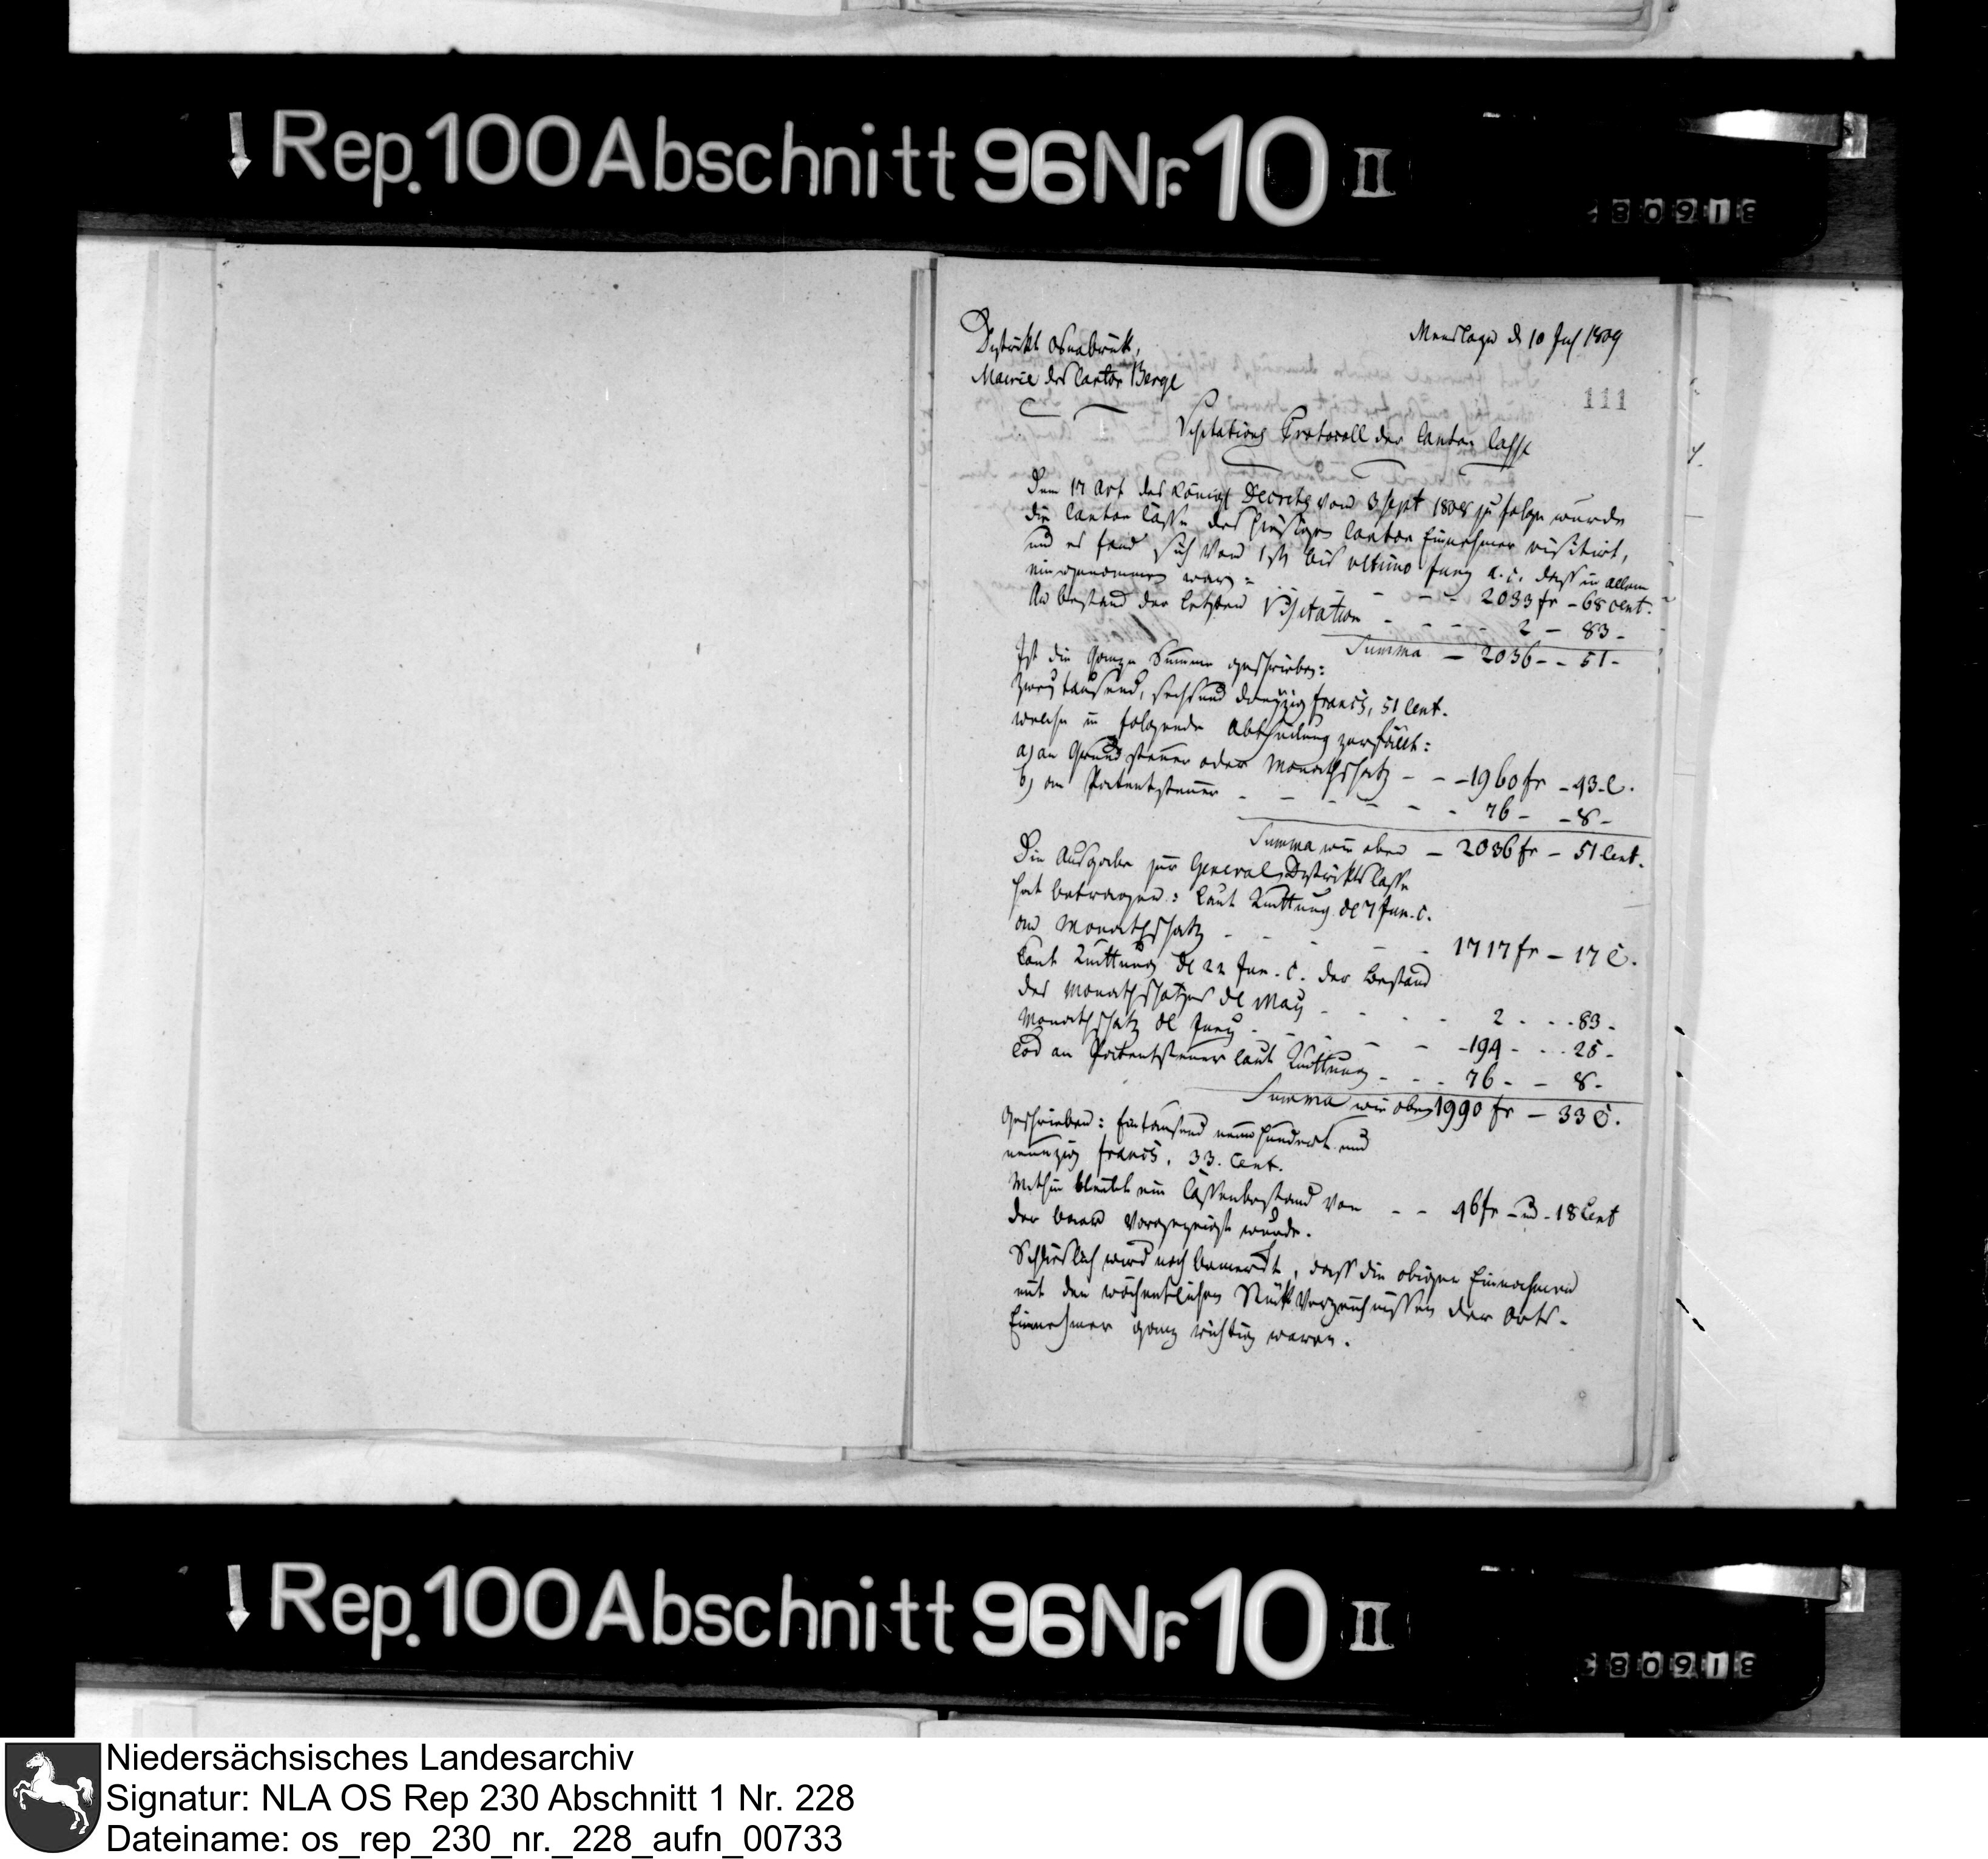 ↓ Rep. 100 Abschnitt 96 Nr. 10 II
Distrikt Osnabrück,
Mairie des Canton Berge
Menslage d 10 Jul 1809
111
Visitations Protocoll der Canton Casse
Dem 17 Art des Königl Decrets vom 3 Sept 1808 zu folge wurde
die Canton Casse des hiesigen Canton Einnehmer visitirt,
und es fand sich vom 1st bis ultimo Juny a. c. dass in allem
eingenommen war: - - - 2033 fr - 68 cent.
An Bestand der letzten Visitation - - - - 2 - 83 -
Summa - 2036 - - 51 -
Ist die ganze Summe geschrieben:
Zwey tausend, sechsund dreyzig francs, 51 Cent.
welche in folgende Abtheilung zerfällt:
a) an Grundsteuer oder Monathschatz - - - 1960 fr - 43 C.
b) an Patentsteuer - - - - - - 76 - - 8 -
Summa wie oben - 2036 fr - 51 Cent.
Die Ausgabe zur General Distrikts Casse
hat betragen: laut Quittung de 7 Jun. c.
an Monathschatz - - - - - 1717 fr - 17 C.
laut Quittung de 22 Jun. c. der Bestand
des Monathschatzes de May - - - - 2 - - - 83 -
Monathschatz de Juny - - - - - 194 - - - 25 -
an Patentsteuer laut Quittung - - - 76 - - 8 -
Summa wie oben 1990 fr - 33 C.
geschrieben: Eintausend neunhundert und
neunzig francs, 33. Cent.
Mithin bleibt ein Cassenbestand von - - 46 fr - u - 18 Cent
der baar vorgezeigt wurde.
Schlieslich wird noch bemerckt, dass die obigen Einnahmen
mit den wöchentlichen Stück Verzeichnissen der Orts-
Einnehmer ganz richtig waren.
↓ Rep. 100 Abschnitt 96 Nr. 10 II
Niedersächsisches Landesarchiv
Signatur: NLA OS Rep 230 Abschnitt 1 Nr. 228
Dateiname: os_rep_230_nr._228_aufn_00733